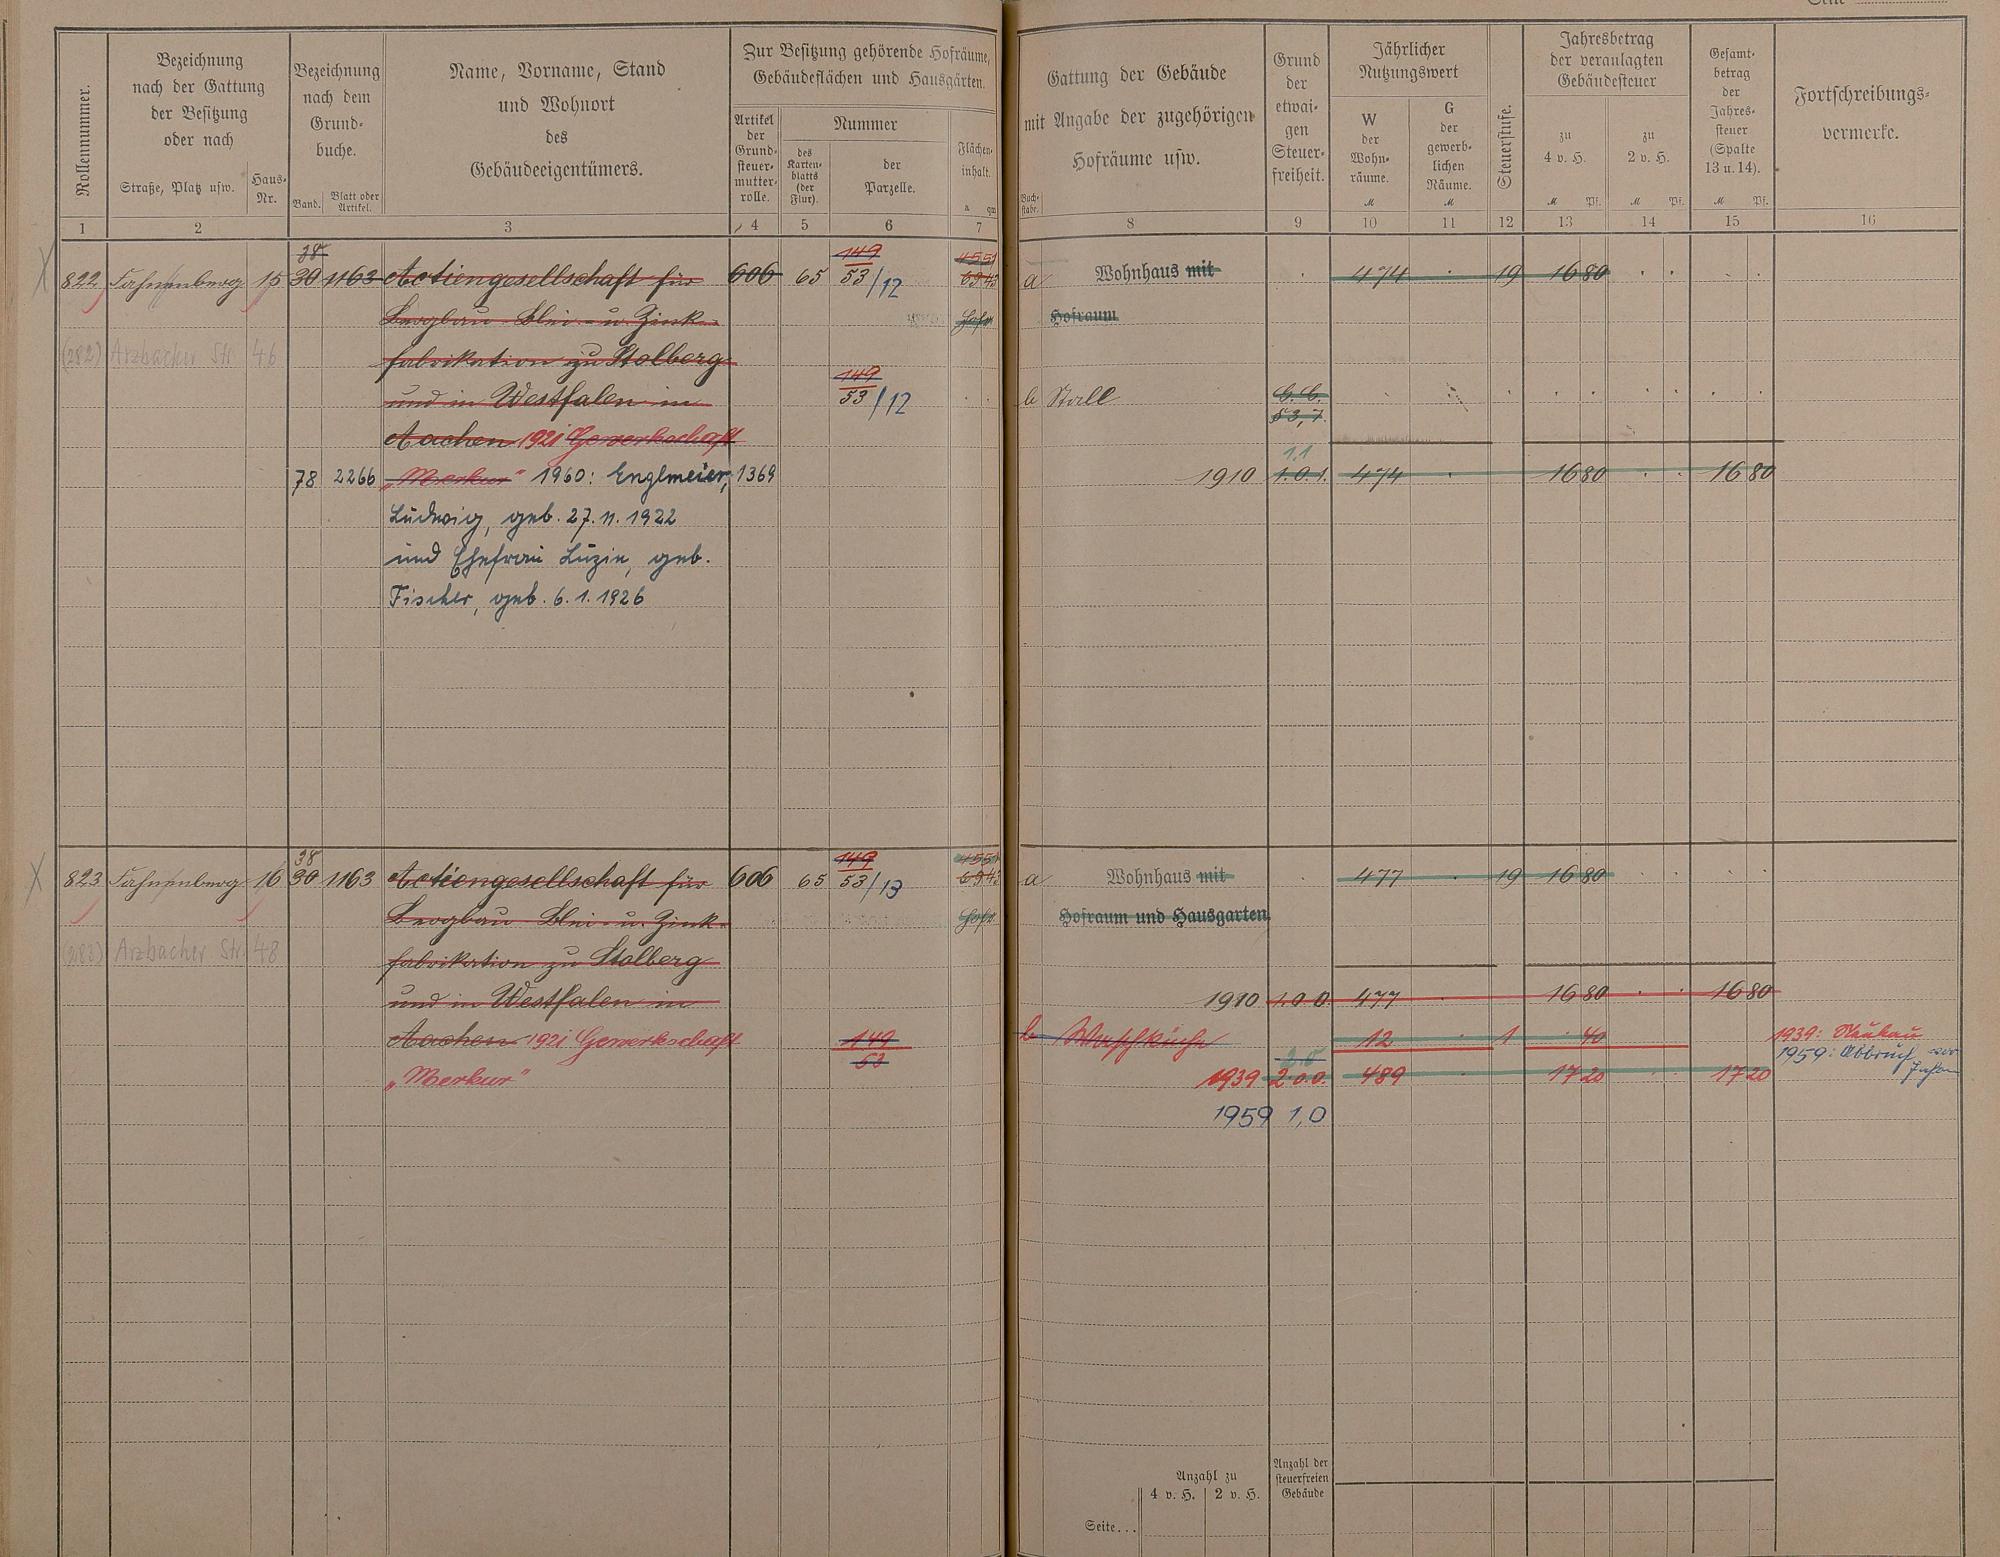 Seite
Rollennummer.
Bezeichnung
nach der Gattung
der Besitzung
oder nach
Straße, Platz usw.
Haus-
Nr.
Bezeichnung
nach dem
Grund-
buche.
Band.
Blatt oder
Artikel.
Name, Vorname, Stand
und Wohnort
des
Gebäudeeigentümers.
Zur Besitzung gehörende Hofräume,
Gebäudeflächen und Hausgärten.
Artikel
der
Grund-
steuer-
mutter-
rolle.
Nummer
des
Karten-
blatts
(der
Flur).
der
Parzelle.
Flächen-
inhalt.
a qm
Gattung der Gebäude
mit Angabe der zugehörigen
Hofräume usw.
Buch-
stabe.
Grund
der
etwai-
gen
Steuer-
freiheit.
Jährlicher
Nutzungswert
W
der
Wohn-
räume.
M
G
der
gewerb-
lichen
Räume.
M
Steuerstufe.
Jahresbetrag
der veranlagten
Gebäudesteuer
zu
4 v. H.
M Pf.
zu
2 v. H.
M Pf.
Gesamt-
betrag
der
Jahres-
steuer
(Spalte
13 u. 14).
M Pf.
Fortschreibungs-
vermerke.
1 2 3 4 5 6 7 8 9 10 11 12 13 14 15 16
38 149 4551
822 Fahnenberg 15 30 1163 Actiengesellschaft für 606 65 53/12 6943 a Wohnhaus mit 474 19 16 80
Bergbau Blei- u. Zink- Hofr. Hofraum
(282) Arzbacher Str. 46 fabrikation zu Stolberg
149
und in Westfalen in 53/12 b Stall G. G.
§ 3, 7.
Aachen 1921 Gewerkschaft
1.1
78 2266 „Merkur" 1960: Englmeier, 1369 1910 1.0.1. 474 16 80 16 80
Ludwig, geb. 27.11.1922
und Ehefrau Luzie, geb.
Fischer, geb. 6.1.1926
38 149 4551
823 Fahnenberg 16 30 1163 Actiengesellschaft für 606 65 53/13 6943 a Wohnhaus mit 477 19 16 80
Bergbau Blei- u. Zink- Hofr. Hofraum und Hausgarten
(283) Arzbacher Str. 48 fabrikation zu Stolberg
und in Westfalen in 1910 1.0.0. 477 16 80 16 80
Aachen 1921 Gewerkschaft 149 b Waschküche 12 1 40 1939: Neubau
53 2.0 1959: Abbruch vor
„Merkur" 1939 2.0.0. 489 17 20 17 20 Jahren
1959 1,0
Anzahl zu
4 v. H. 2 v. H.
Anzahl der
steuerfreien
Gebäude
Seite...